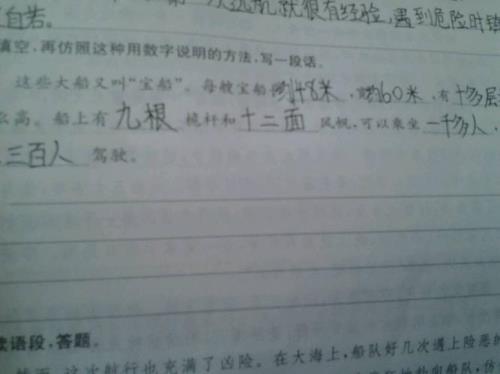 次远航就很有经验,遇到危险时镇
自若。
填空,再仿照这种用数字说明的方法,写一段话。
这些大船又叫“宝船”。每艘宝船 约148米,宽约60米,有十多层
么高。船上有 九根 桅杆和 十二面 风帆,可以乘坐 一千多人,
三百人 驾驶。
读语段,答题。
这次航行也充满了凶险。在大海上,船队好几次遇上险恶的